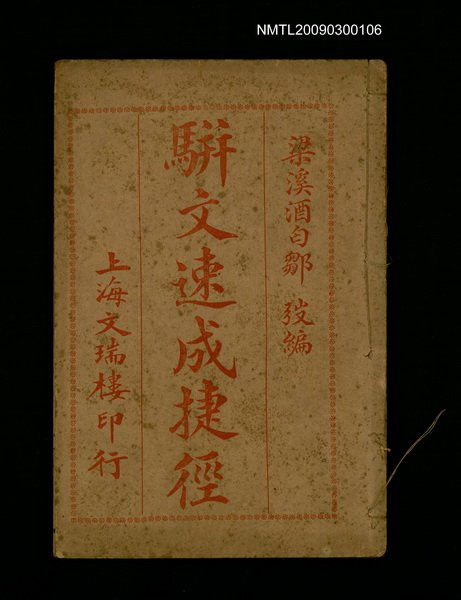 NMTL20090300106
梁溪酒丐鄒弢編
駢文速成捷徑
上海文瑞樓印行